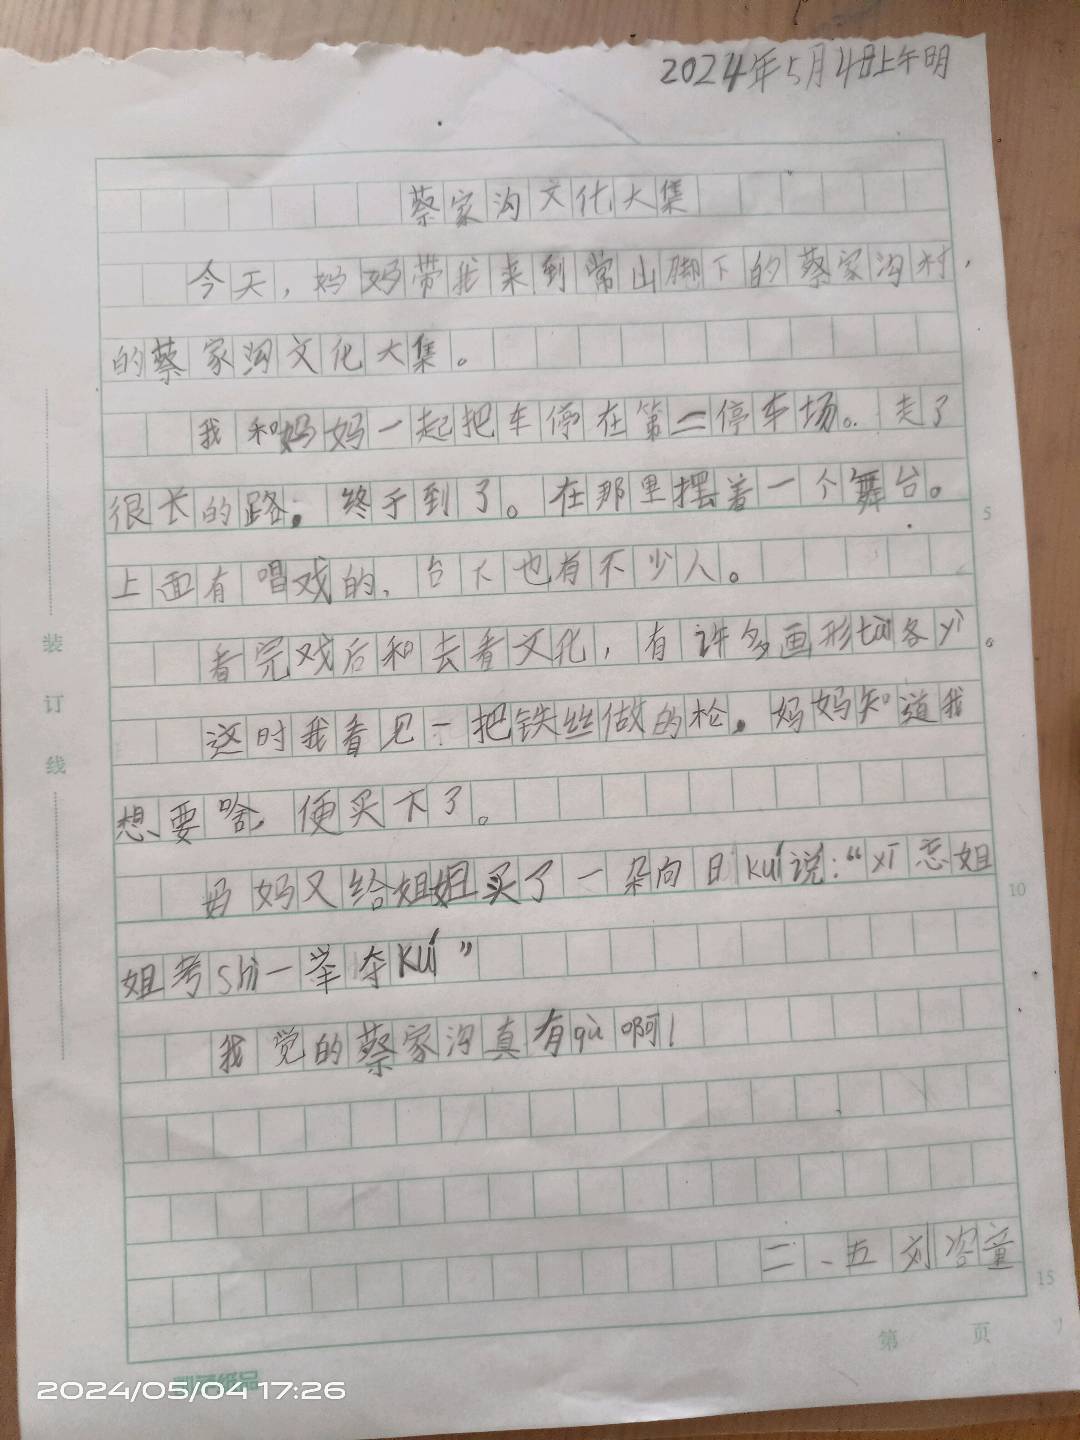 2024年5月4日上午明
蔡家沟文化大集
今天，妈妈带我来到常山脚下的蔡家沟村，
的蔡家沟文化大集。
我和妈妈一起把车停在第二停车场。走了
很长的路，终于到了。在那里摆着一个舞台。
5
上面有唱戏的，台下也有不少人。
看完戏后和去看文化，有许多画形tài各yì。
这时我看见一把铁丝做的枪，妈妈知道我
想要啥，便买下了。
妈妈又给姐姐买了一朵向日kuí说：“xī 姐
10
姐考shì一举夺kuí”
我觉的蔡家沟真有qù啊！
二、五 刘容童
15
装
订
线
第 页
2024/05/04 17:26